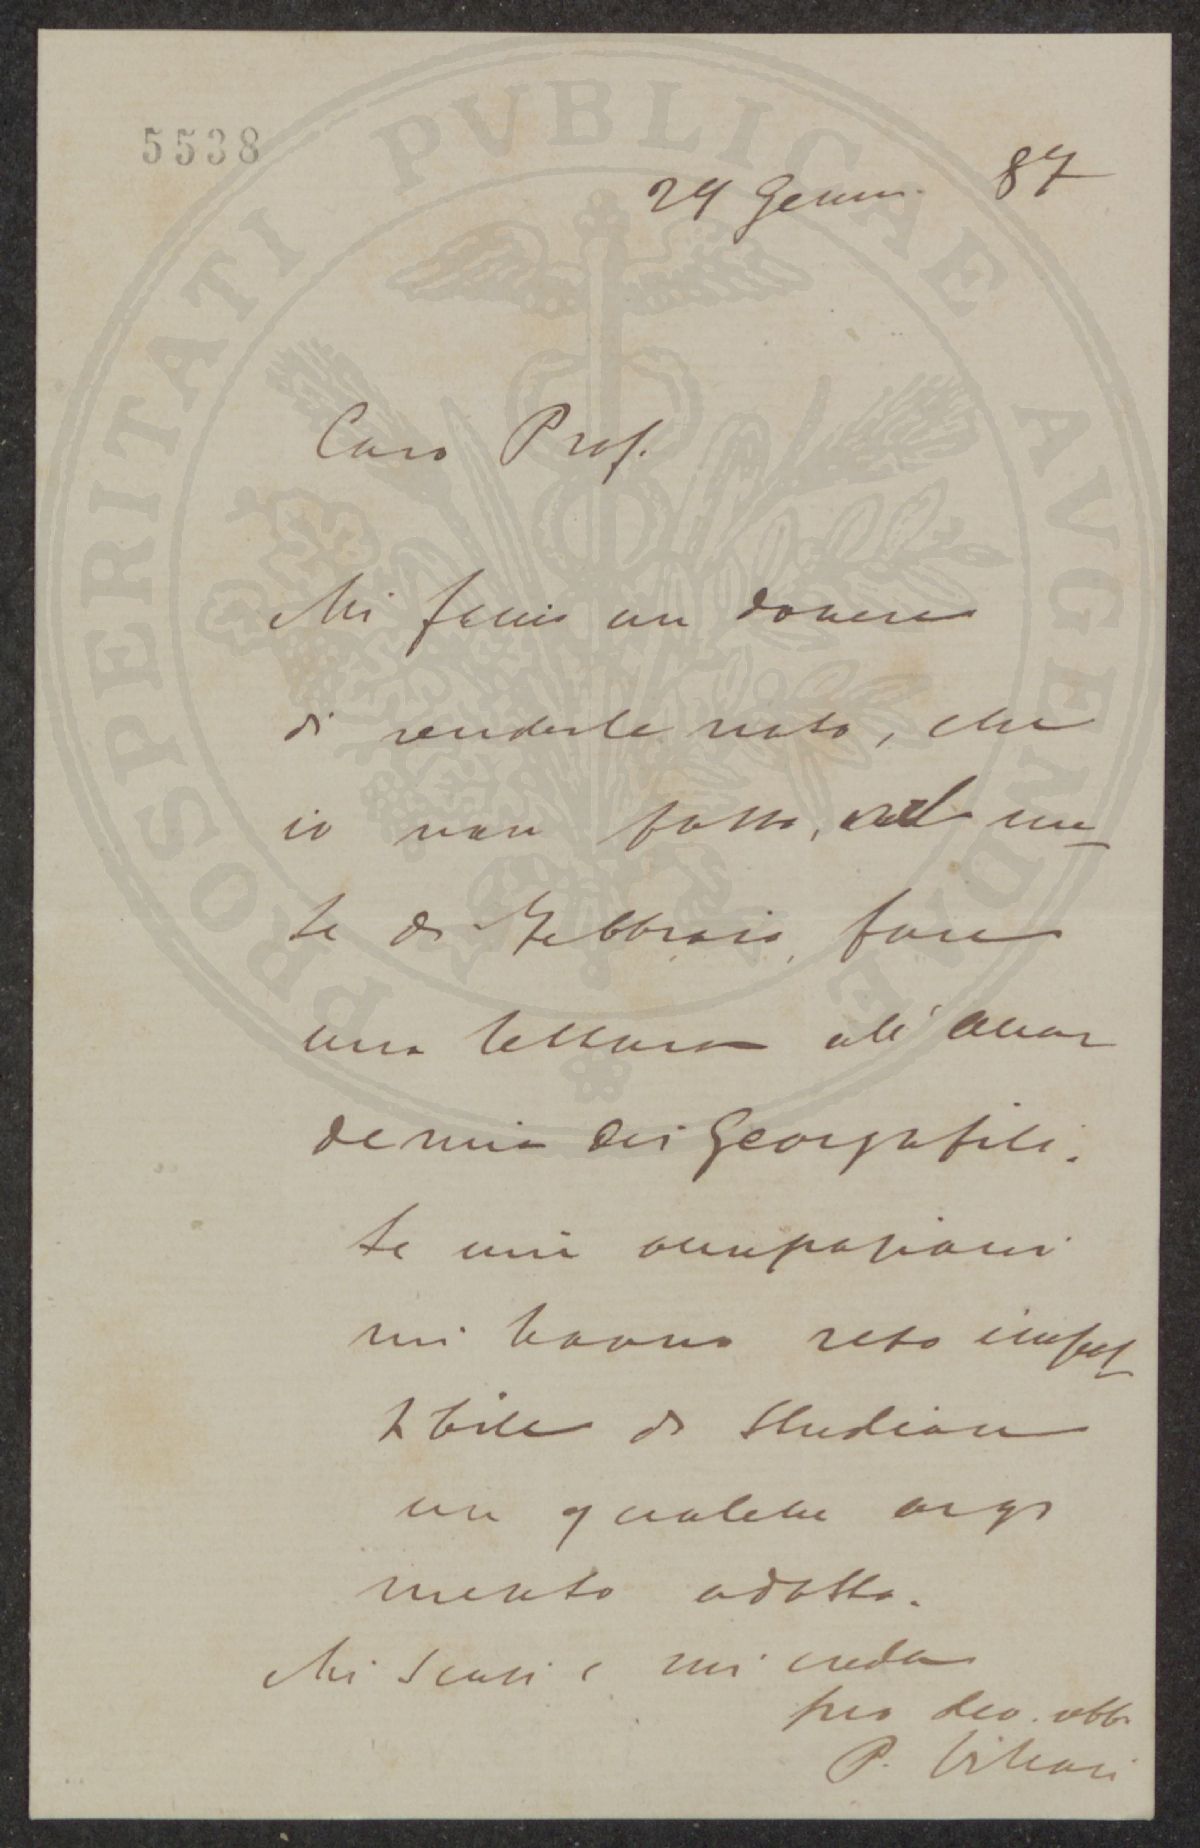 5538
29 Genn. 87
Caro Prof.
Mi faccio un dovere
di renderle noto, che
io non posso, nel me-
se di Febbraio, fare
una lettura all'Acca
demia dei Georgofili.
Le mie occupazioni
mi hanno reso impos-
sibile di studiare
un qualche argo
mento adatto.
Mi scusi e mi creda
suo dev. obb.
P. Villari
PROSPERITATI PVBLICAE AVGENDAE